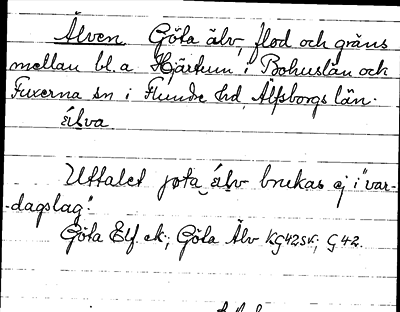 Älven Göta älv, flod och gräns
mellan bl.a Hjärtum i Bohuslän och
Fuxerna sn i Flundre hd, Älfsborgs län.
älva
Uttalet jota älv brukas ej i "var-
-dagslag".
Göta Elf ek; Göta Älv KG42SK; G 42.